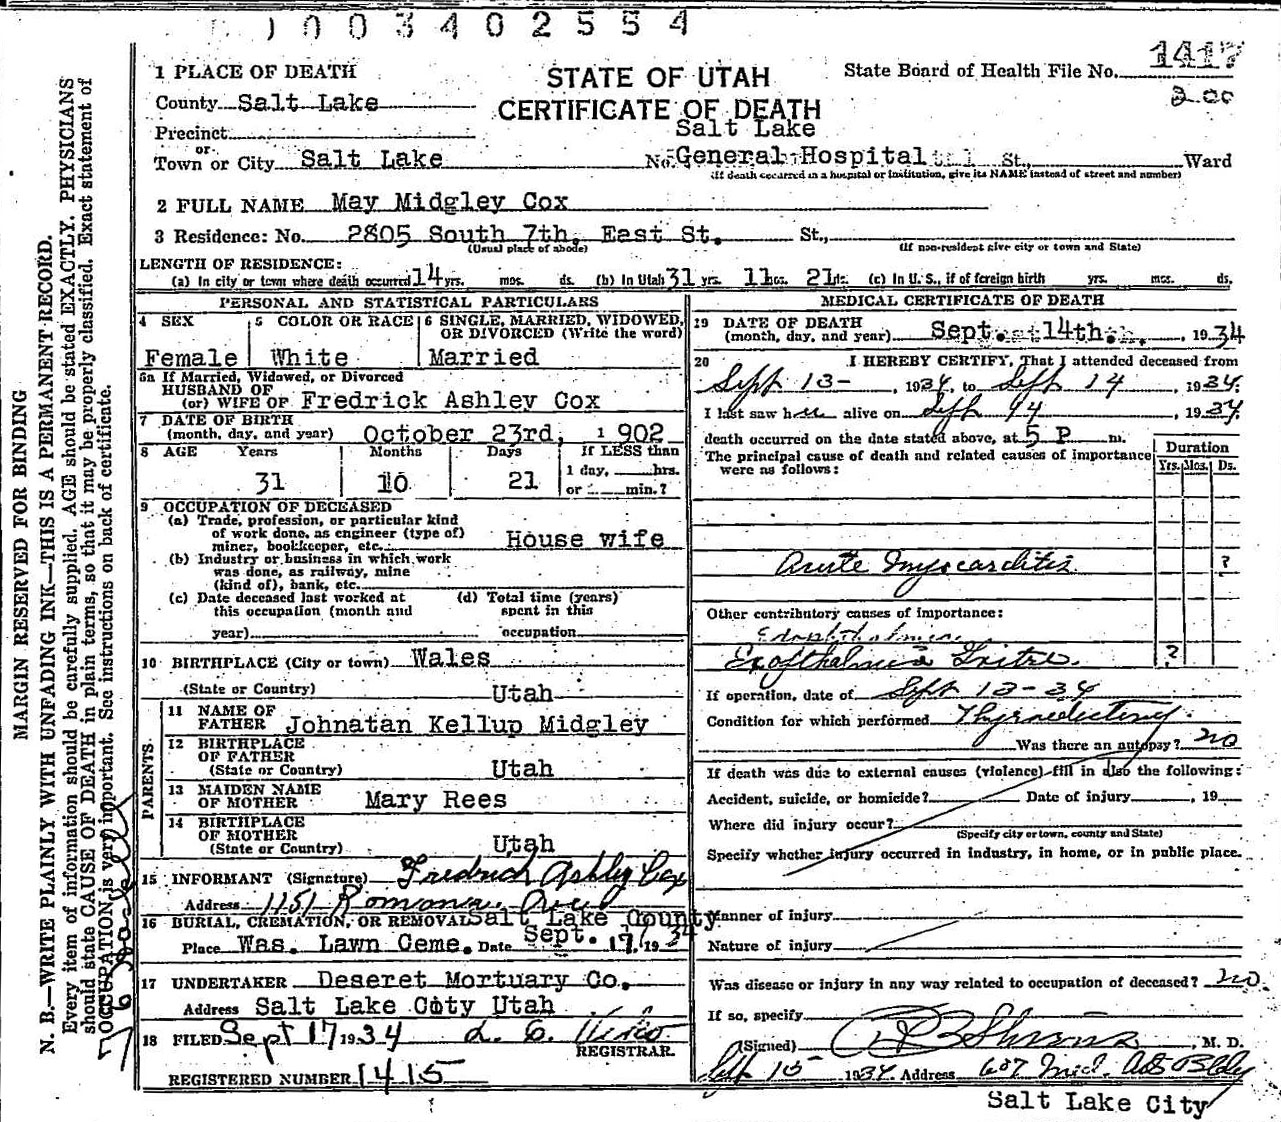 1003402554
1 PLACE OF DEATH
STATE OF UTAH
CERTIFICATE OF DEATH
State Board of Health File No. 1417
200
County Salt Lake
Precinct
or
Town or City Salt Lake
Salt Lake
No. General Hospital St., Ward
(If death occurred in a hospital or institution, give its NAME instead of street and number)
2 FULL NAME May Midgley Cox
3 Residence: No. 2805 South 7th, East St. St.,
(Usual place of abode) (If non-resident give city or town and State)
LENGTH OF RESIDENCE:
(a) In city or town where death occurred 14 yrs. mos. ds. (b) In Utah 31 yrs. 11 mos. 21 ds. (c) In U. S., if of foreign birth yrs. mos. ds.
PERSONAL AND STATISTICAL PARTICULARS
4 SEX
Female
5 COLOR OR RACE
White
6 SINGLE, MARRIED, WIDOWED, OR DIVORCED (Write the word)
Married
6a If Married, Widowed, or Divorced
HUSBAND OF
(or) WIFE OF Fredrick Ashley Cox
7 DATE OF BIRTH
(month, day, and year) October 23rd, 1902
8 AGE Years Months Days If LESS than
31 10 21 1 day, hrs.
or min.?
9 OCCUPATION OF DECEASED
(a) Trade, profession, or particular kind
of work done, as engineer (type of)
miner, bookkeeper, etc. House wife
(b) Industry or business in which work
was done, as railway, mine
(kind of), bank, etc.
(c) Date deceased last worked at
this occupation (month and
year)
(d) Total time (years)
spent in this
occupation
10 BIRTHPLACE (City or town) Wales
(State or Country) Utah
PARENTS
11 NAME OF
FATHER Johnatan Kellup Midgley
12 BIRTHPLACE
OF FATHER
(State or Country) Utah
13 MAIDEN NAME
OF MOTHER Mary Rees
14 BIRTHPLACE
OF MOTHER
(State or Country) Utah
15 INFORMANT (Signature) Fredrich Ashley Cox
Address 1151 Romona Ave
16 BURIAL, CREMATION, OR REMOVAL Salt Lake County
Place Was. Lawn Ceme. Date Sept. 17, 1934
17 UNDERTAKER Deseret Mortuary Co.
Address Salt Lake City Utah
18 FILED Sept 17 1934
REGISTRAR
REGISTERED NUMBER 1415
MEDICAL CERTIFICATE OF DEATH
19 DATE OF DEATH
(month, day, and year) Sept. 14th. , 1934
20 I HEREBY CERTIFY, That I attended deceased from
Sept 13- , 1934, to Sept 14 , 1934.
I last saw her alive on Sept 14 , 1934.
death occurred on the date stated above, at 5 P m.
The principal cause of death and related causes of importance
were as follows:
Duration
Yrs. Mos. Ds.
Acute Myocarditis ?
Other contributory causes of importance:
Exofthalmia Goitre. ?
If operation, date of Sept 13-34
Condition for which performed Thyroidectomy
Was there an autopsy? no
If death was due to external causes (violence) fill in also the following:
Accident, suicide, or homicide? Date of injury , 19
Where did injury occur?
(Specify city or town, county and State)
Specify whether injury occurred in industry, in home, or in public place.
Manner of injury
Nature of injury
Was disease or injury in any way related to occupation of deceased? no.
If so, specify
(Signed) , M. D.
Sept 15 1934. Address 607 Med. Arts Bldg
Salt Lake City
MARGIN RESERVED FOR BINDING
N. B.—WRITE PLAINLY WITH UNFADING INK—THIS IS A PERMANENT RECORD.
Every item of information should be carefully supplied. AGE should be stated EXACTLY. PHYSICIANS
should state CAUSE OF DEATH in plain terms, so that it may be properly classified. Exact statement of
OCCUPATION is very important. See instructions on back of certificate.